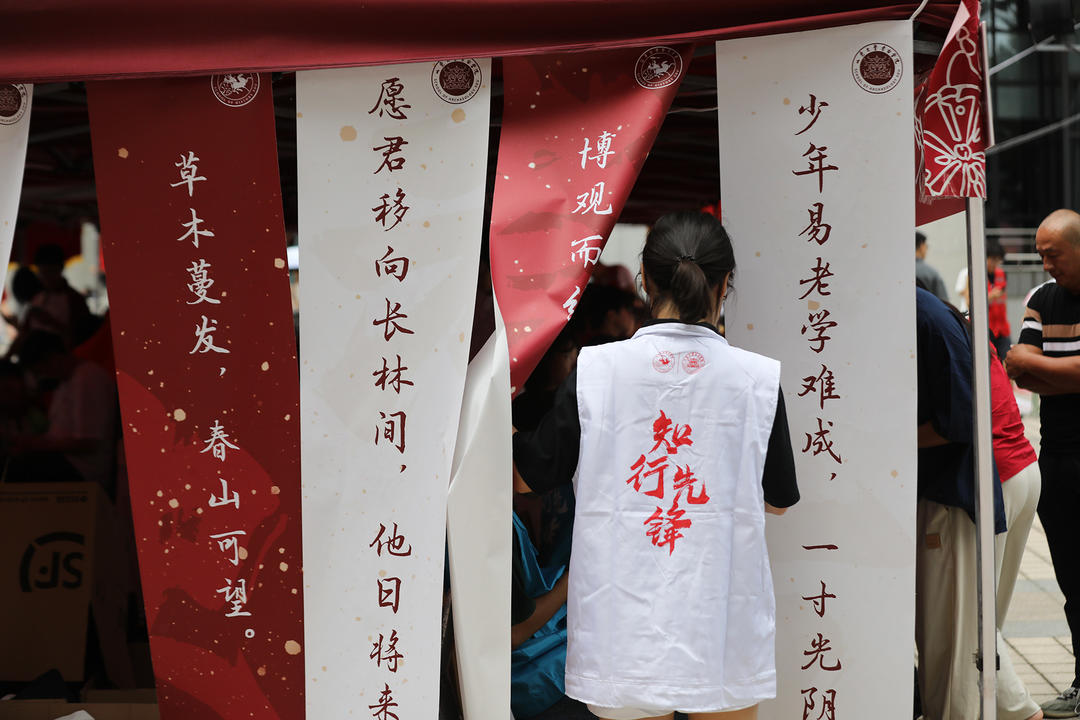 草木蔓发，春山可望。
愿君移向长林间，他日将来
博观而
少年易老学难成，一寸光阴
知行先锋
JS